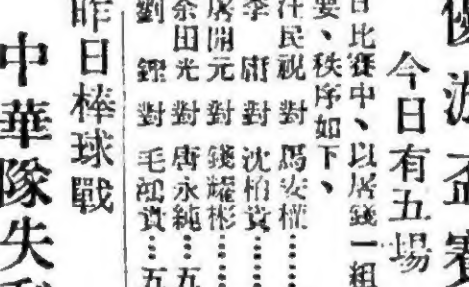 優游盃賽
今日有五場
日比賽中、以屠錢一組
要、秩序如下、
汪民視 對 馬安權⋯
李 庸 對 沈柏貴⋯
屠開元 對 錢耀彬⋯
余田光 對 唐永純⋯五
劉 鏗 對 毛鴻貴⋯五
昨日棒球戰
中華隊失利